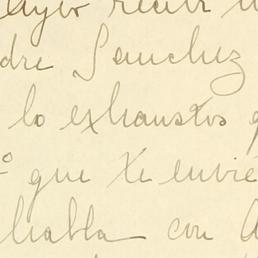 ayer recibi u
dre Sanchez
lo exhaustos q
º que te envié
habla con A